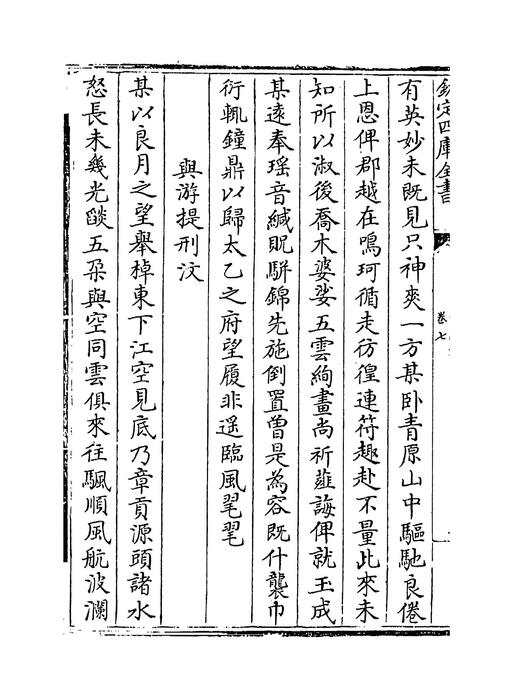 欽定四庫全書
卷七
有英妙未既見只神爽一方某卧青原山中驅馳良倦
上恩俾郡越在鳴珂循走彷徨連符趣赴不量此來未
知所以淑後喬木婆娑五雲絢畫尚祈薤誨俾就玉成
某遠奉瑶音緘貺駢錦先施倒置曽是為容既什襲巾
衍輒鐘鼎以歸太乙之府望履非遥臨風毣毣
與游提刑汶
某以良月之望舉棹東下江空見底乃章貢源頭諸水
怒長未幾光燄五朶與空同雲俱來往颿順風航波瀾